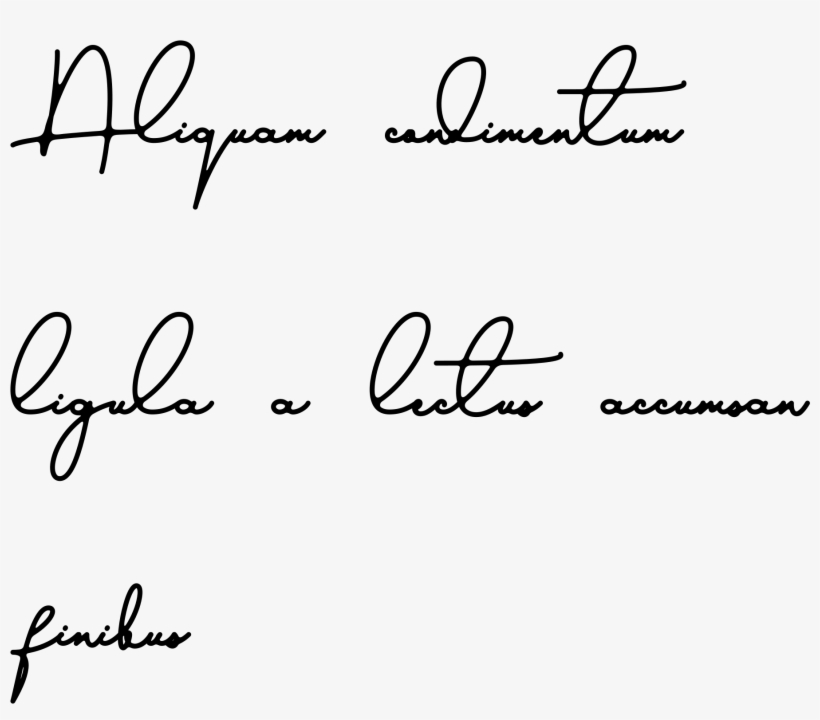 Aliquam condimentum
ligula a lectus accumsan
finibus